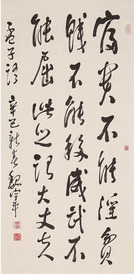 富貴不能淫貧
賤不能移威武不
能屈此之謂大丈夫
孟子語 辛巳新春 魏